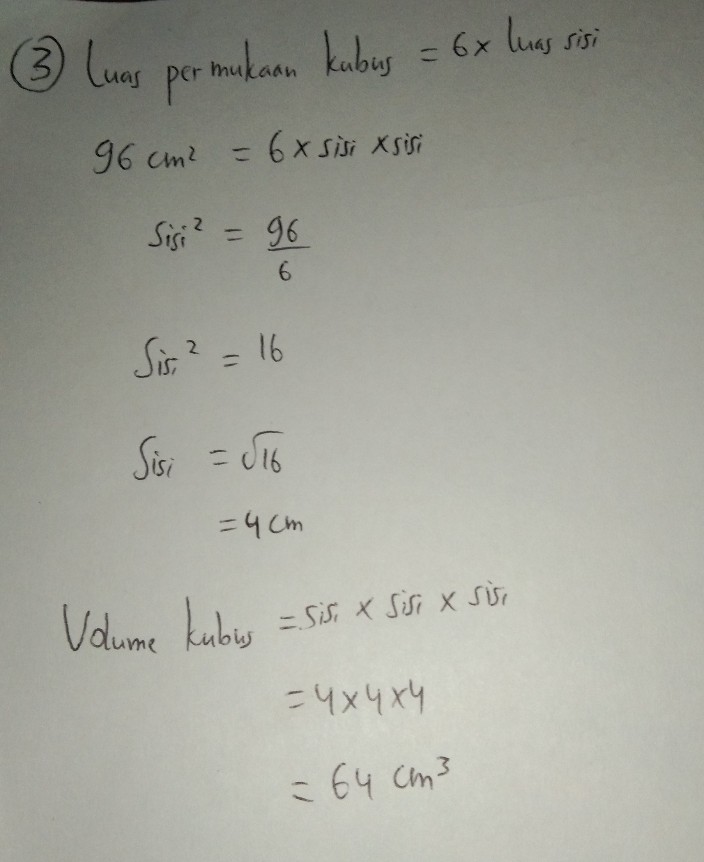 ③ Luas permukaan kubus = 6 x luas sisi
96 cm² = 6 x sisi x sisi
Sisi² = 96/6
Sisi² = 16
Sisi = √16
= 4 cm
Volume kubus = sisi x sisi x sisi
= 4 x 4 x 4
= 64 cm³